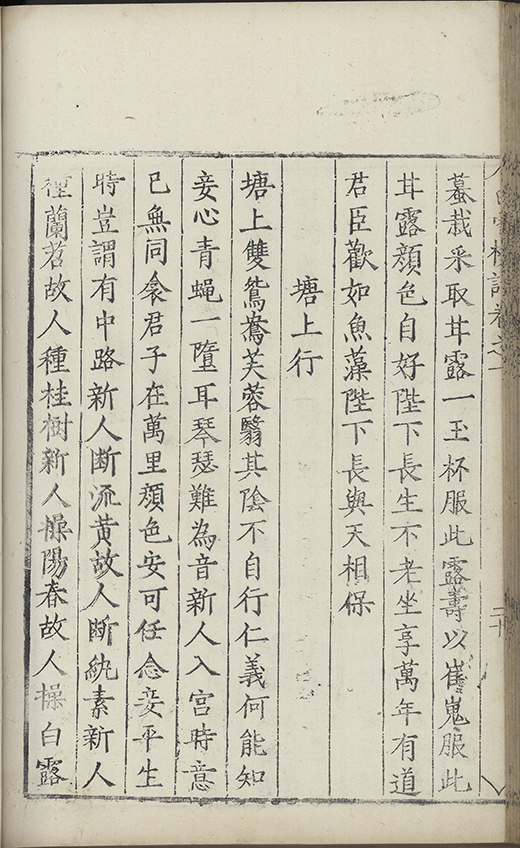 蟇栽采取甘露一玉杯服此露壽以崔嵬服此
甘露顏色自好陛下長生不老坐享萬年有道
君臣歡如魚藻陛下長與天相保
塘上行
塘上雙鴛鴦芙蓉翳其陰不自行仁義何能知
妾心青蝿一墮耳琴瑟難為音新人入宮時意
已無同衾君子在萬里顏色安可任念妾平生
時豈謂有中路新人斷流黃故人斷紈素新人
種蘭苕故人種桂樹新人操陽春故人操白露